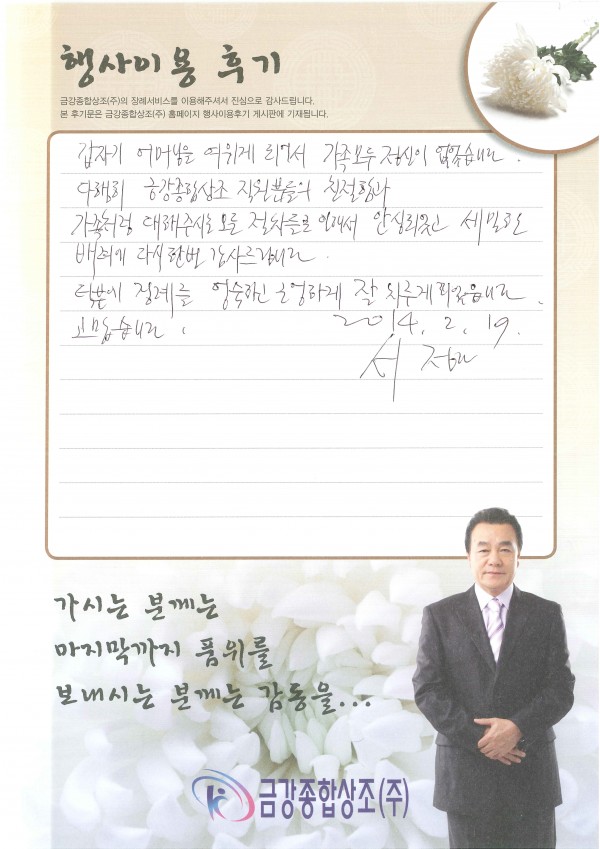 행사이용 후기
금강종합상조(주)의 장례서비스를 이용해주셔서 진심으로 감사드립니다.
본 후기문은 금강종합상조(주) 홈페이지 행사이용후기 게시판에 기재됩니다.
갑자기 어머님을 여위게 되어서 가족모두 정신이 없었습니다.
다행히 금강종합상조 직원분들의 친절함과
가족처럼 대해주시는 모든 절차를 안심되었고 세밀한
배려에 다시한번 감사드립니다.
덕분에 장례를 엄숙하고 조용하게 잘 치루게되었습니다.
고맙습니다.
2014. 2. 19.
서
가시는 분께는
마지막까지 품위를
보내시는 분께는 감동을...
금강종합상조(주)